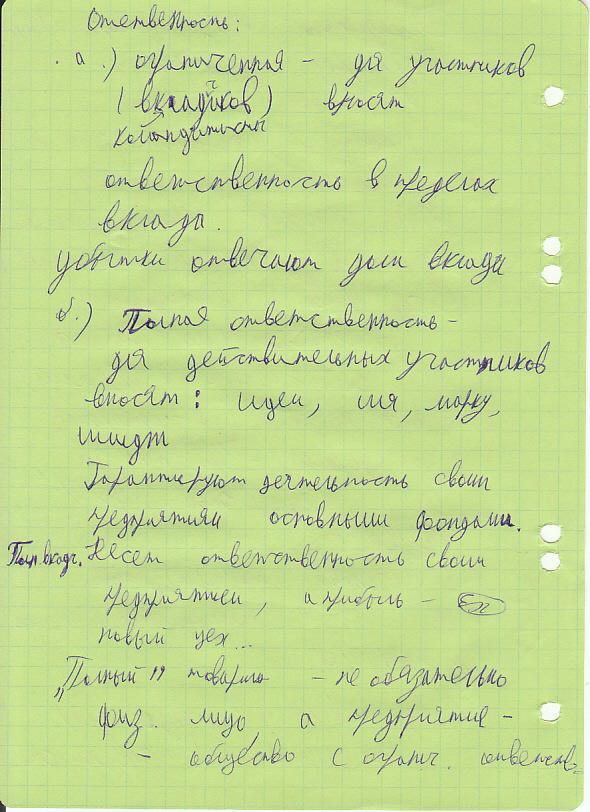 Ответвенность:
а.) ограниченная – для участников
(вкладчиков) вносят
командитисты
ответственность в пределах
вклада.
убытки отвечают доли вклада
б.) Полная ответственность –
для действительных участников
вносят: идеи, имя, марку,
имидж
Гарантируют деятельность своим
предприятием основными фондами.
Полн. вкладч. Несет ответственность своим
предприятием, а прибыль –
новый цех...
„Полный” товарищ – не обязательно
физ. лицо, а предприятие –
– общество с огранич. ответств.